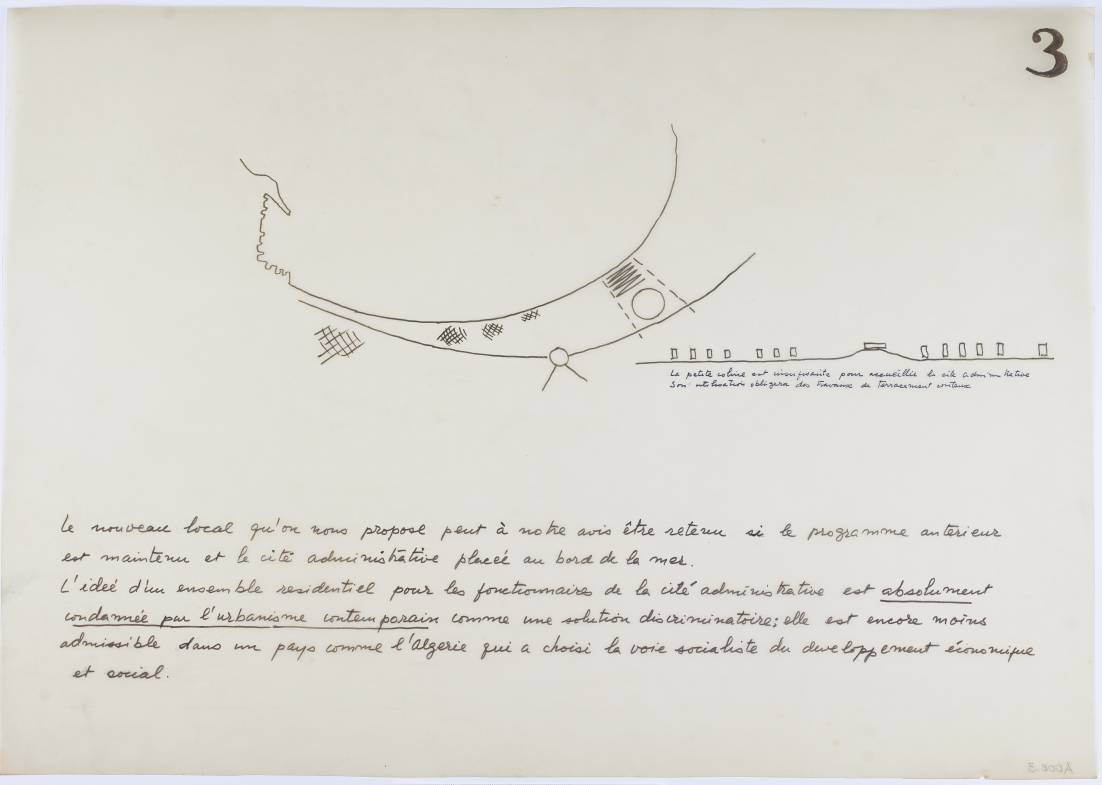 3
La petite coline est insufisante pour accueillir la cité administrative
Son utilisation obligera des travaux de terrassement couteux
Le nouveau local qu'on nous propose peut à notre avis être retenu si le programme anterieur
est maintenu et le cité administrative placée au bord de la mer.
L'ideé d'un ensemble residentiel pour les fonctionnaires de la cité administrative est absolument
condamnée par l'urbanisme contemporain comme une solution discriminatoire; elle est encore moins
admissible dans un pays comme l'Algerie qui a choisi la voie socialiste du developpement économique
et social.